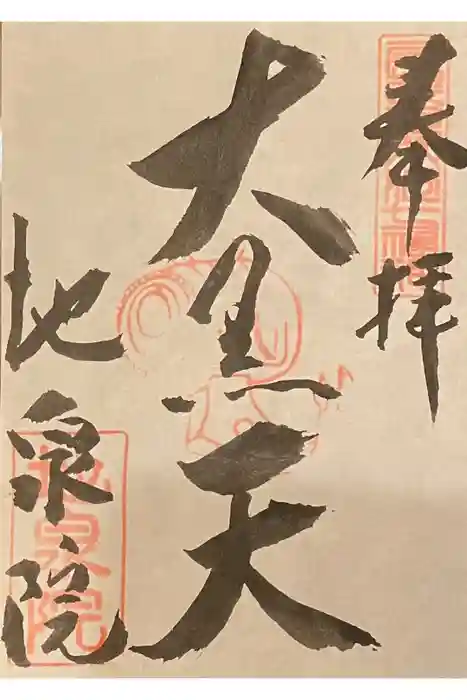 奉拝
大黒天
地泉院
地泉院